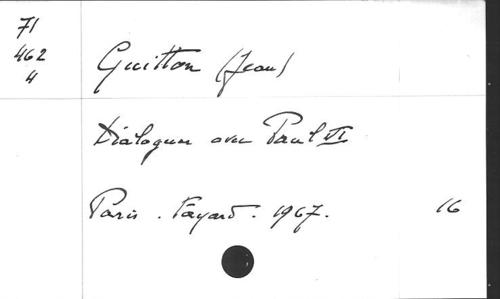 71
462
4
Guitton (Jean)
Dialogues avec Paul VI
Paris. Fayard. 1967.
16